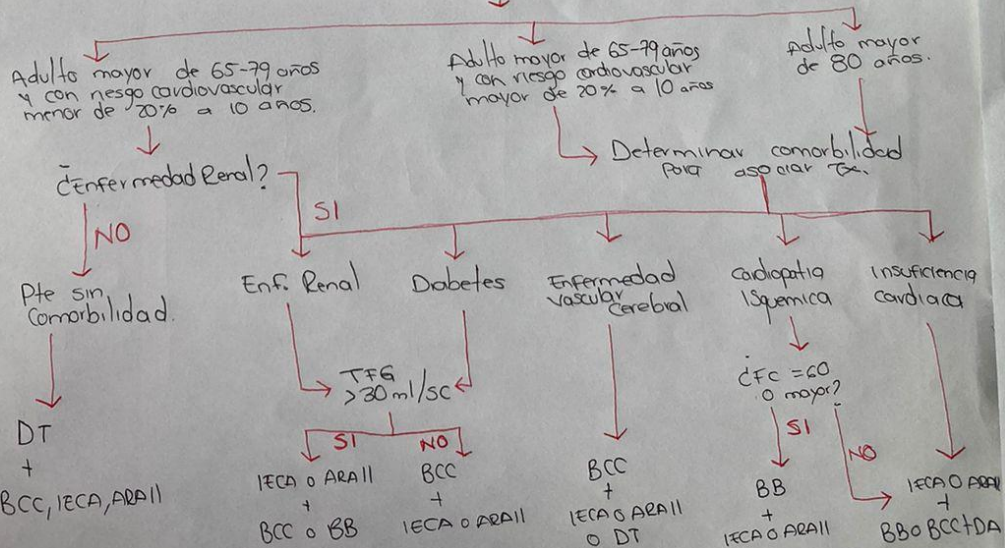 Adulto mayor de 65-79 años
y con riesgo cardiovascular
menor de 20% a 10 años.
Adulto mayor de 65-79 años
y con riesgo cardiovascular
mayor de 20% a 10 años
Adulto mayor
de 80 años.
Determinar comorbilidad
para asociar Tx.
¿Enfermedad Renal?
SI
NO
Pte sin
Comorbilidad.
Enf. Renal
Diabetes
Enfermedad
vascular
cerebral
Cardiopatia
Isquemica
Insuficiencia
cardiaca
TFG
>30ml/sc
¿FC =60
o mayor?
SI
NO
SI
NO
DT
+
BCC, IECA, ARAII
IECA O ARAII
+
BCC o BB
BCC
+
IECA O ARAII
BCC
+
IECA O ARAII
O DT
BB
+
IECA O ARAII
IECA O ARAII
+
BB O BCC+DA